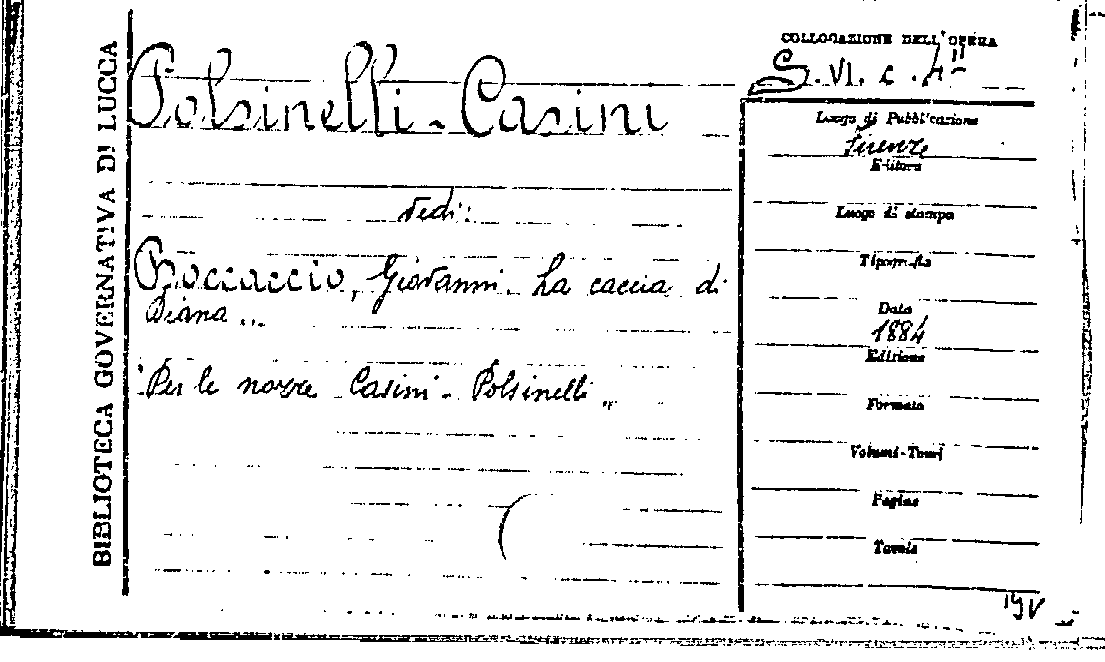 BIBLIOTECA GOVERNATIVA DI LUCCA
Polsinelli-Casini
vedi:
Boccaccio, Giovanni. La caccia di
Diana...
"Per le nozze Casini - Polsinelli"
COLLOCAZIONE DELL'OPERA
S. VI. c.
Luogo di Pubblicazione
Firenze
Editore
Luogo di stampa
Tipografia
Data
1884
Edizione
Formato
Volumi-Tomi
Pagine
Tavole